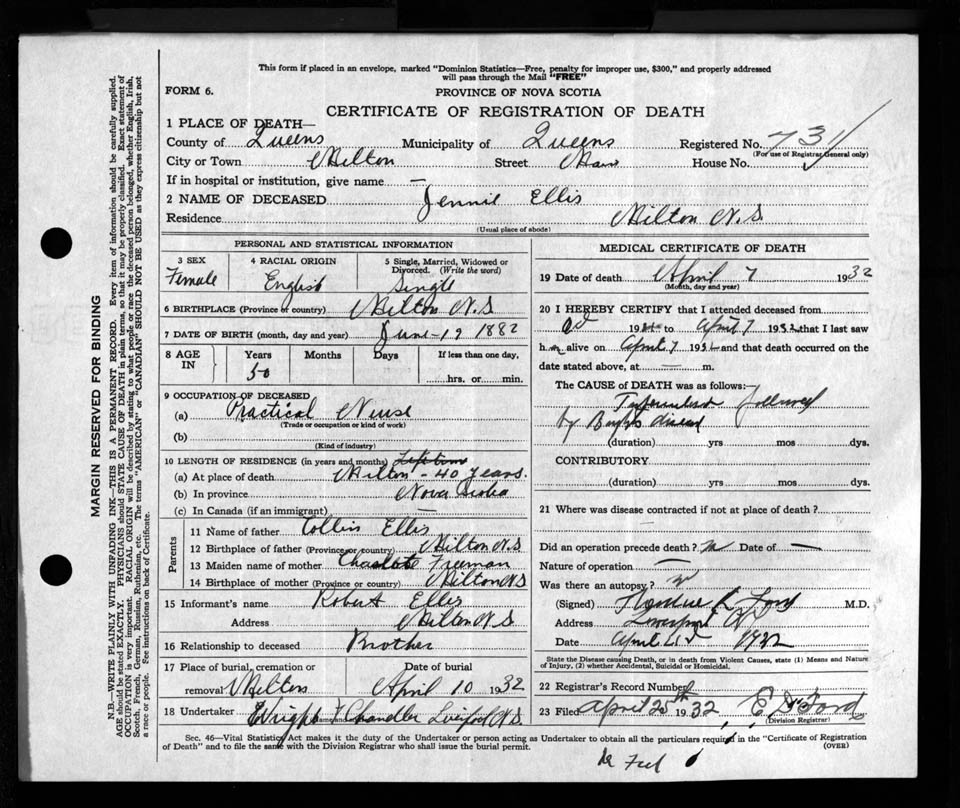 This form if placed in an envelope, marked "Dominion Statistics—Free, penalty for improper use, $300," and properly addressed
will pass through the Mail "FREE"
FORM 6.
PROVINCE OF NOVA SCOTIA
CERTIFICATE OF REGISTRATION OF DEATH
1 PLACE OF DEATH—
County of Queens Municipality of Queens Registered No. 731
(For use of Registrar General only)
City or Town Milton Street Main House No.
If in hospital or institution, give name —
2 NAME OF DECEASED Jennie Ellis
Residence Milton N.S
(Usual place of abode)
PERSONAL AND STATISTICAL INFORMATION
3 SEX
Female
4 RACIAL ORIGIN
English
5 Single, Married, Widowed or
Divorced. (Write the word)
Single
6 BIRTHPLACE (Province or country) Milton N.S
7 DATE OF BIRTH (month, day and year) June 19 1882
8 AGE IN
Years Months Days If less than one day,
50
hrs. or min.
9 OCCUPATION OF DECEASED
(a) Practical Nurse
(Trade or occupation or kind of work)
(b)
(Kind of industry)
10 LENGTH OF RESIDENCE (in years and months) Lifetime
(a) At place of death Milton - 40 years.
(b) In province Nova Scotia
(c) In Canada (if an immigrant) —
Parents
11 Name of father Collins Ellis
12 Birthplace of father (Province or country) Milton N.S
13 Maiden name of mother Charlotte Freeman
14 Birthplace of mother (Province or country) Milton N.S
15 Informant's name Robert Ellis
Address Milton N.S
16 Relationship to deceased Brother
17 Place of burial, cremation or
removal Milton
Date of burial
April 10 1932
18 Undertaker Wright & Chandler Liverpool N.S.
MEDICAL CERTIFICATE OF DEATH
19 Date of death April 7 1932
(Month, day and year)
20 I HEREBY CERTIFY that I attended deceased from
19 to April 7 1932, that I last saw
h alive on April 7 1932 and that death occurred on the
date stated above, at — m.
The CAUSE of DEATH was as follows:—
followed
by Brights disease
(duration) yrs mos dys.
CONTRIBUTORY
(duration) yrs mos dys.
21 Where was disease contracted if not at place of death?
Did an operation precede death? no Date of —
Nature of operation —
Was there an autopsy? no
(Signed) Ford M.D.
Address Liverpool
Date April 1932
State the Disease causing Death, or in death from Violent Causes, state (1) Means and Nature
of Injury, (2) whether Accidental, Suicidal or Homicidal.
22 Registrar's Record Number
23 Filed April 25th 1932 Ford
(Division Registrar)
Sec. 46—Vital Statistics Act makes it the duty of the Undertaker or person acting as Undertaker to obtain all the particulars required in the "Certificate of Registration
of Death" and to file the same with the Division Registrar who shall issue the burial permit.
(OVER)
MARGIN RESERVED FOR BINDING
N.B.—WRITE PLAINLY WITH UNFADING INK—THIS IS A PERMANENT RECORD. Every item of information should be carefully supplied.
AGE should be stated EXACTLY. PHYSICIANS should STATE CAUSE OF DEATH in plain terms, so that it may be properly classified. Exact statement of
OCCUPATION is very important. RACIAL ORIGIN will be described by stating to what people or race the deceased person belonged, whether English, Irish,
Scotch, French, German, Russian, Ruthenian, etc. The terms "AMERICAN" or "CANADIAN" SHOULD NOT BE USED as they express citizenship but not
a race or people. Fee instructions on back of Certificate.